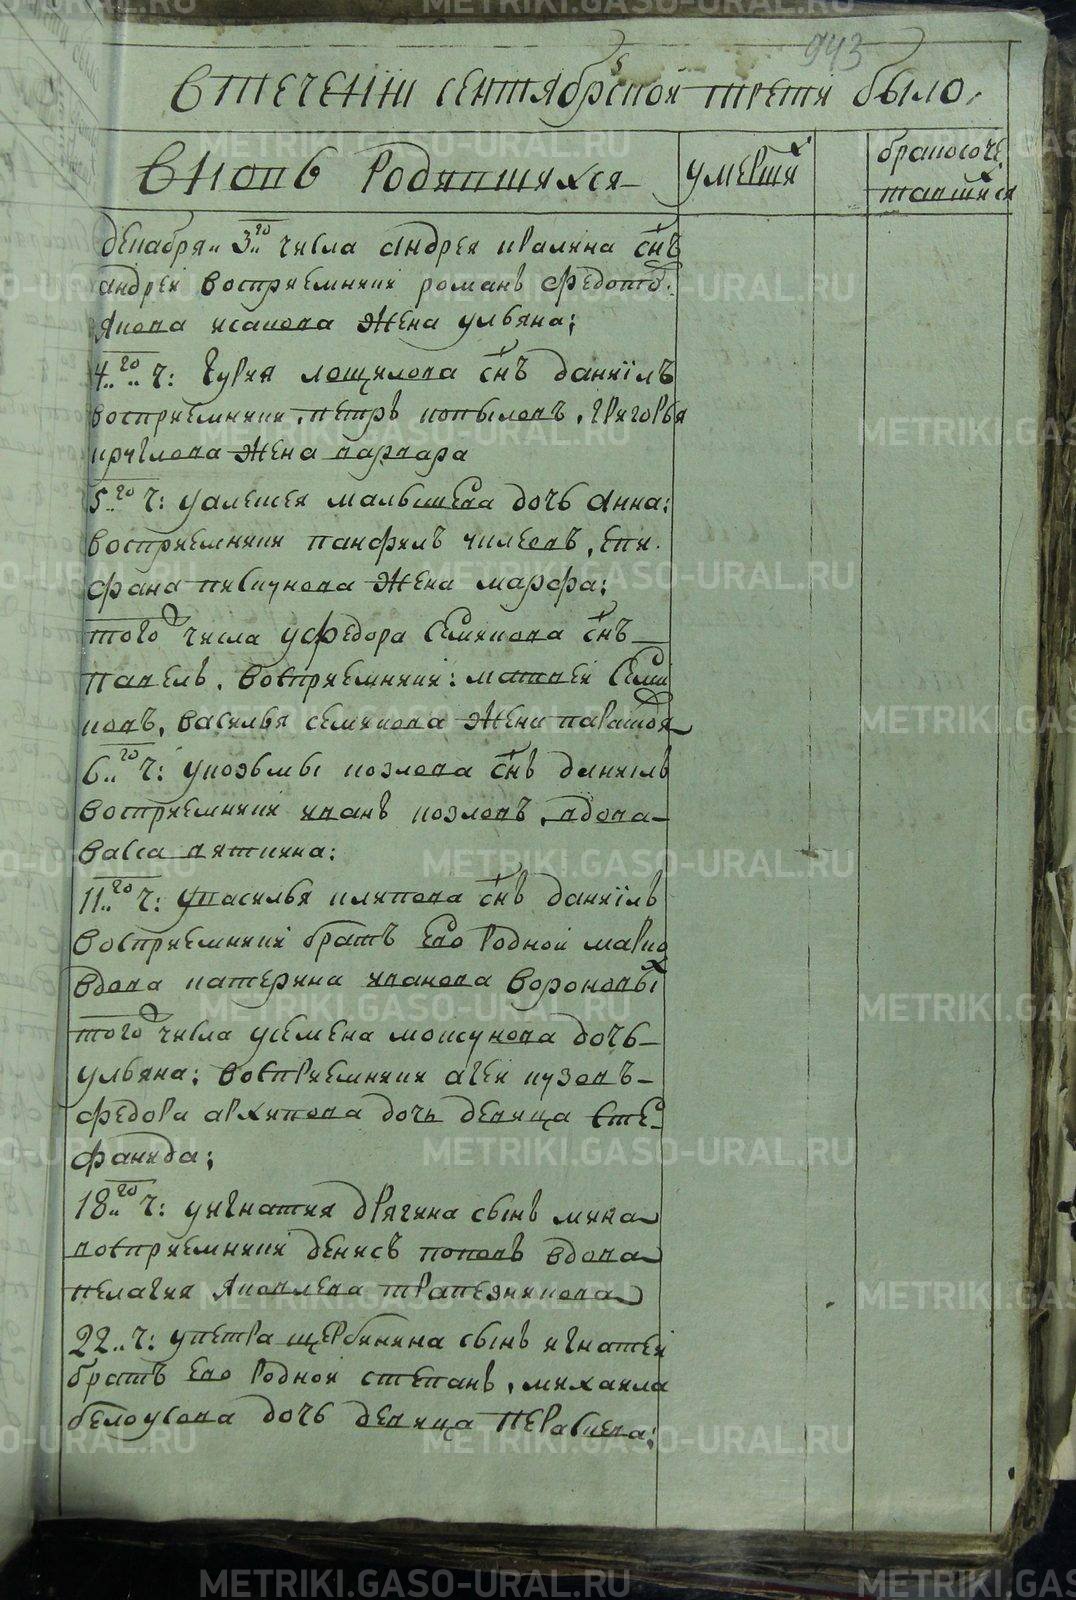 943
Втечении сентябрской трети было,
Вновь Родившихся
умершихъ
бракосоче
тавшихся
декабря 3го числа андрея ипалина снъ
андреи восприемники романъ федотовъ
якова исакова жена ульяна;
4го ч: Гурия лощилова снъ даниїлъ
восприемники, петръ копыловъ, григорья
жена варвара
5го ч: уалексея малышева дочь анна:
восприемники панфилъ, епи
фана пискунова жена марфа:
того числа уфедора Семикова снъ
павелъ, восприемники: матвеи Семи
ковъ, василья семикова жена парасковя
6го ч: укозьмы козлова снъ данилъ
восприемники иванъ козловъ, вдова
васса вяткина:
11го ч: увасилья снъ даниїлъ
восприемники братъ Его Родной марко
вдова катерина иванова вороновы
того числа усемена моисунова дочь
ульяна: восприемники агеи пузовъ
федора архипова дочь девица сте
фанида;
18го ч: уигнатия дрягина сынъ мина
восприемники денисъ поповъ вдова
пелагия яковлева трапезникова
22.. ч: упетра щербинина сынъ игнатеи
братъ Его Родной степанъ, михаила
белоусова дочь девица Перасковя;
METRIKI.GASO-URAL.RU